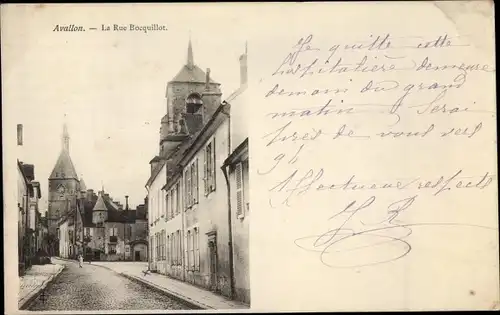 Avallon. — La Rue Bocquillot.
Je quitte cette
hospitalière demeure
demain du grand
matin serai
près de vous vers
9 h
Affectueux respects